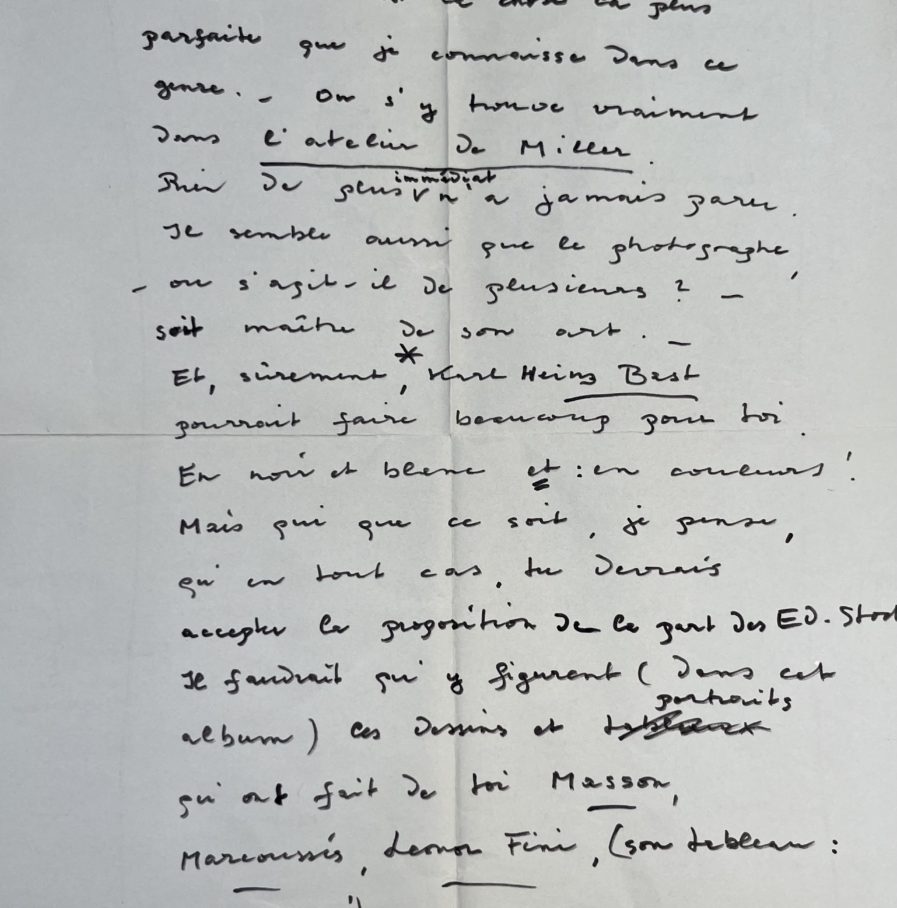 la plus
parfaite que je connaisse dans ce
genre. – On s'y trouve vraiment
dans l'atelier de Miller.
Rien de plus immédiat n'a jamais paru.
Il semble aussi que le photographe,
– ou s'agit-il de plusieurs ? –
soit maître de son art. –
*
Et, sûrement, Karl Heinz Bast
pourrait faire beaucoup pour toi.
En noir et blanc et : en couleurs !
Mais qui que ce soit, je pense,
qu'en tout cas, tu devrais
accepter la proposition de la part des ED. Stock
Il faudrait qu'y figurent (dans cet
portraits
album) les dessins et tableaux
qui ont fait de toi Masson,
Marcoussis, Leonor Fini, (son tableau :